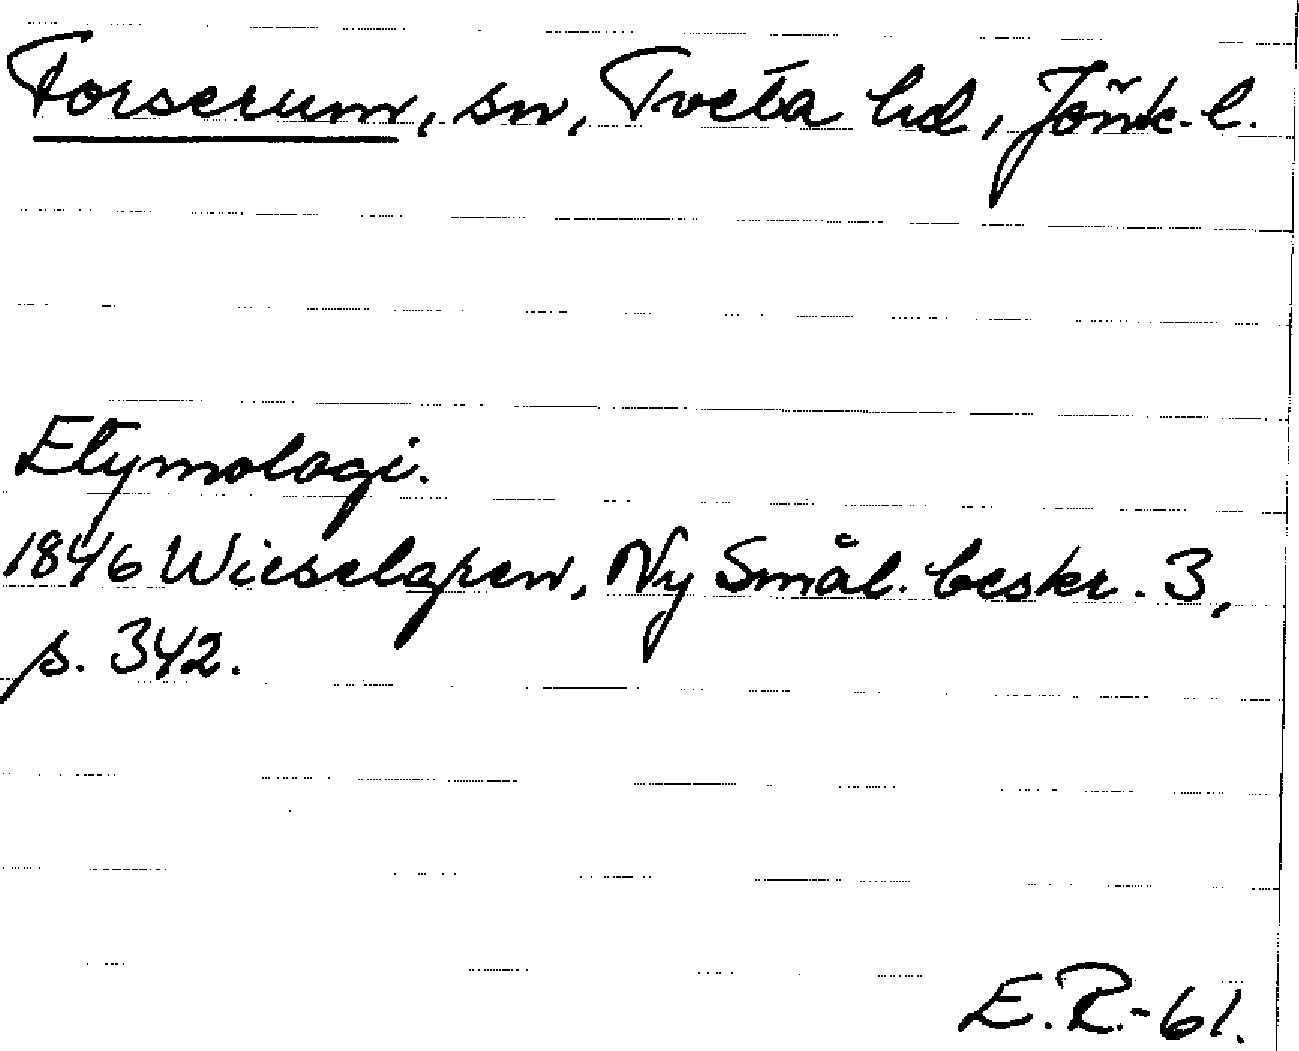 Forserum, sn, Tveta hd, Jönk. l.
Etymologi.
1846 Wieselgren, Ny Smål. beskr. 3,
s. 342.
E.R.-61.